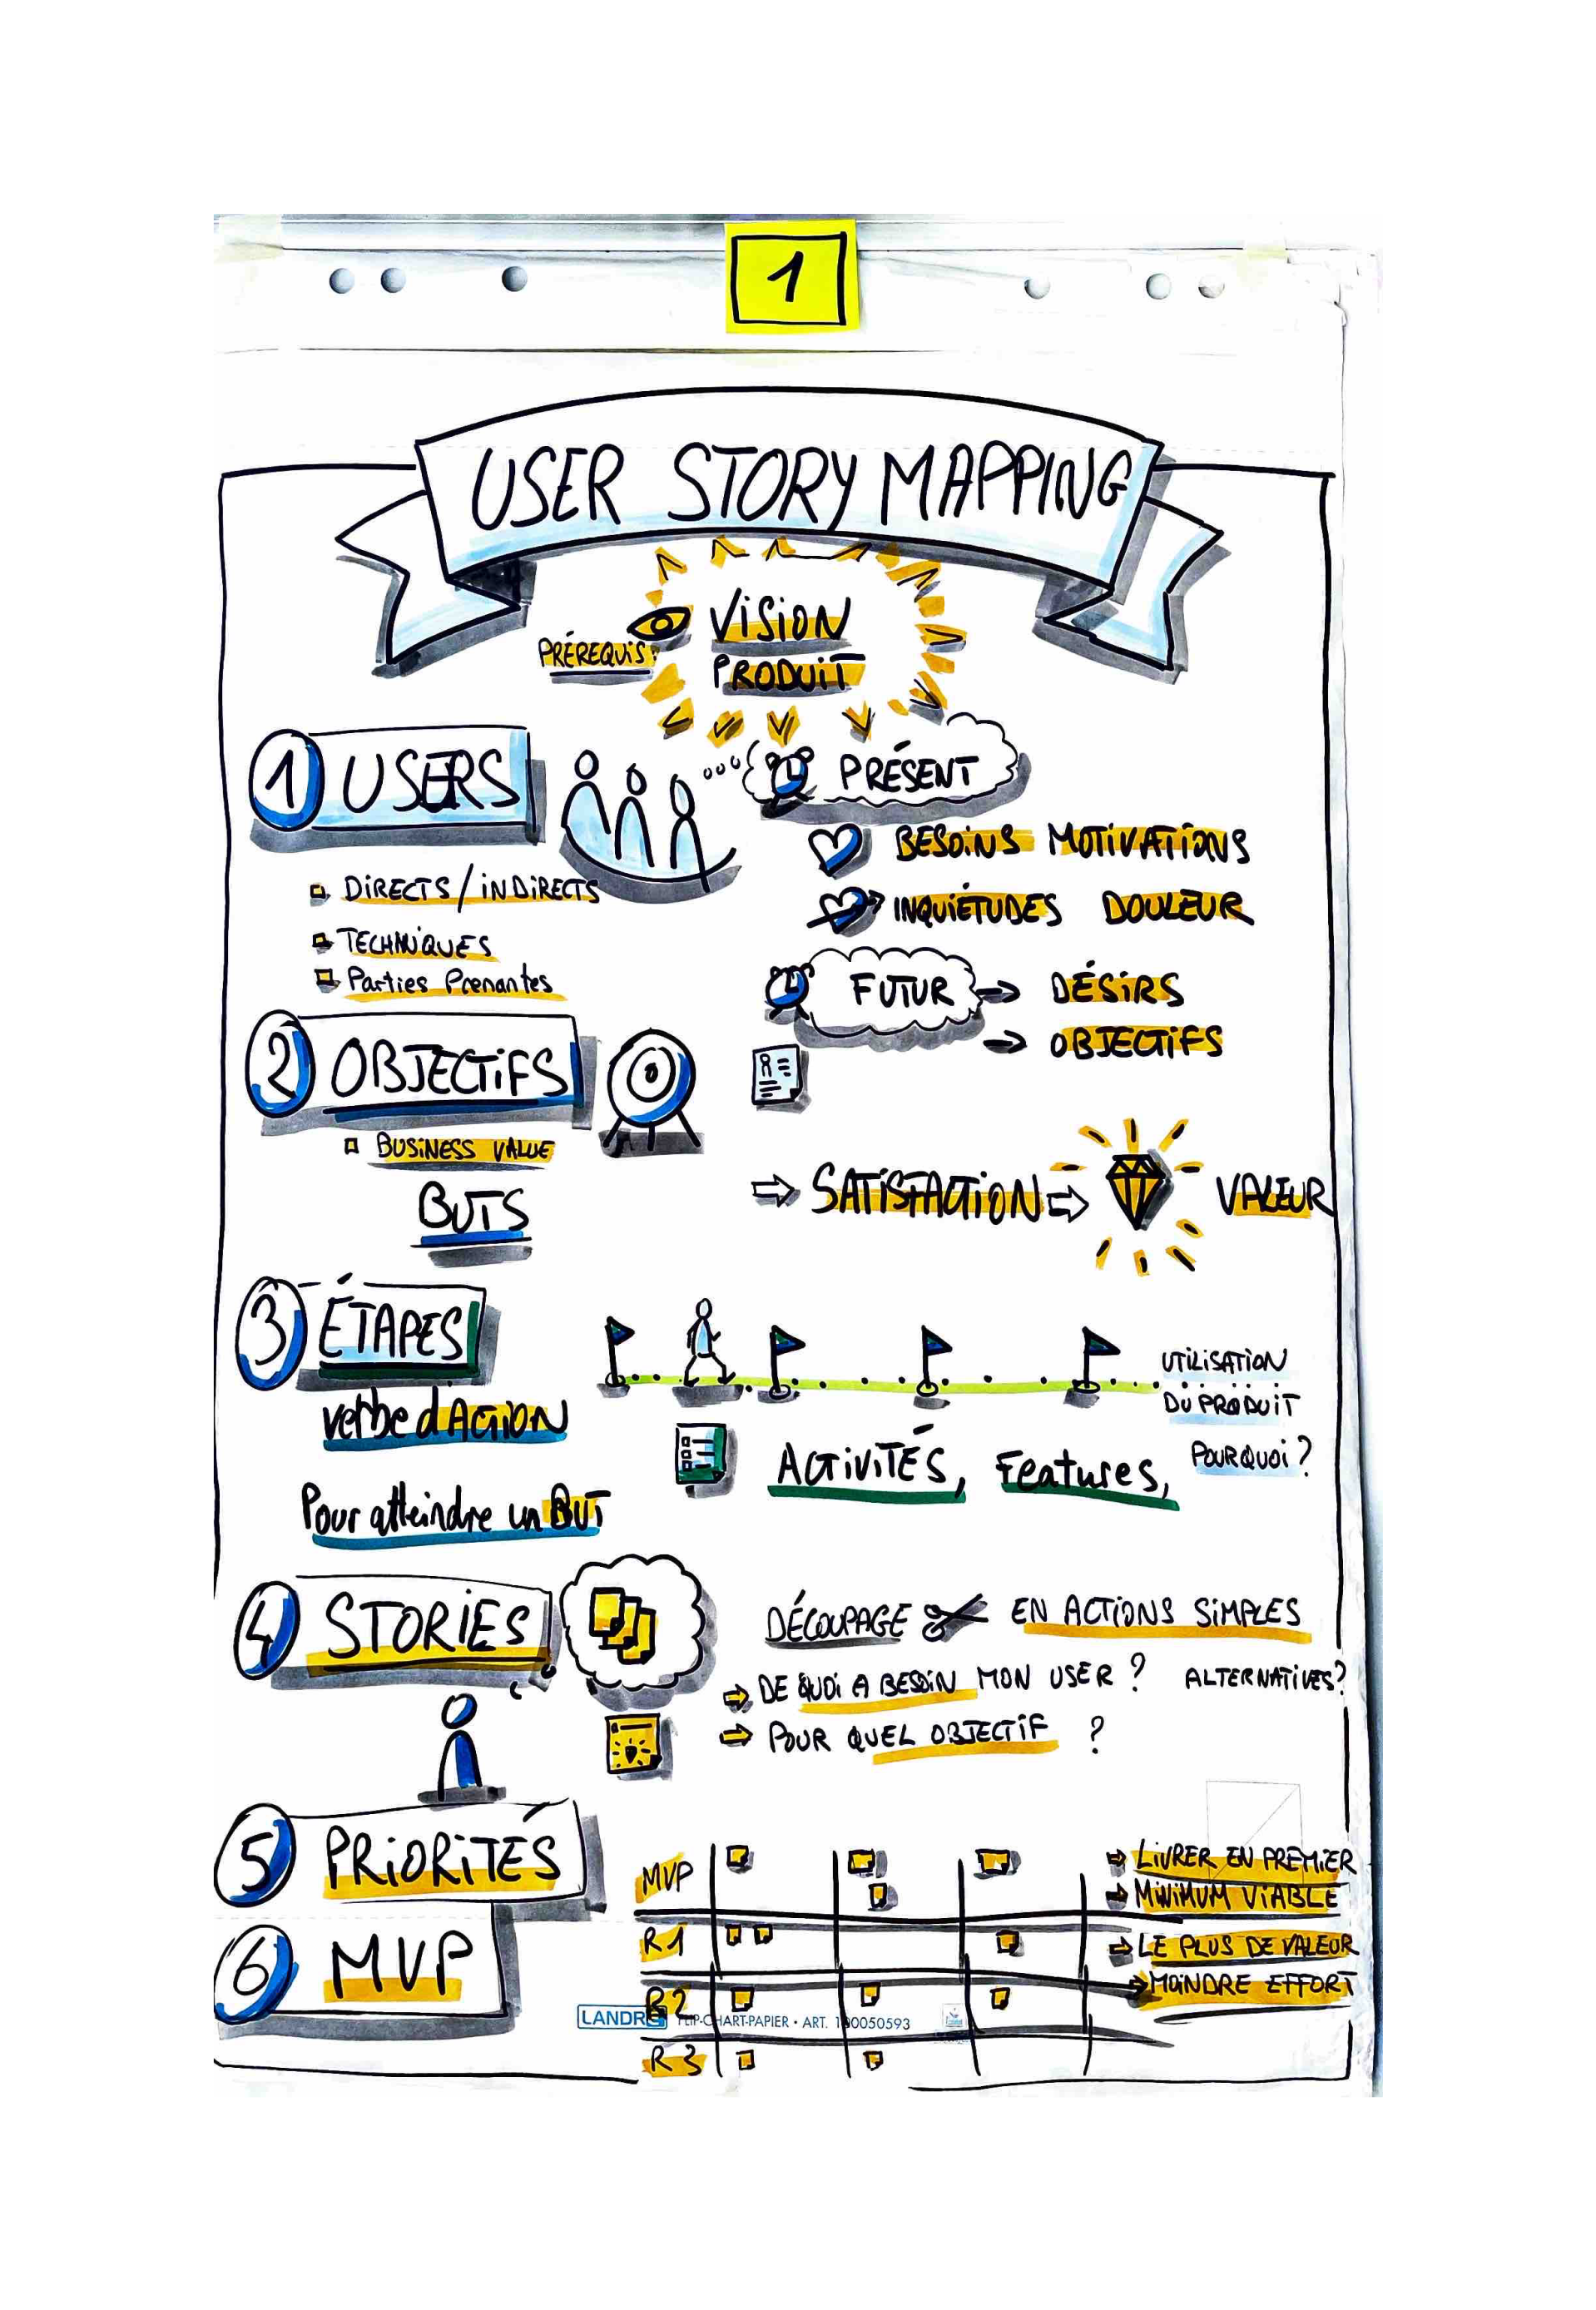 1
USER STORY MAPPING
PRÉREQUIS:
VISION
PRODUIT
1 USERS
DIRECTS / INDIRECTS
TECHNIQUES
Parties Prenantes
PRÉSENT
BESOINS MOTIVATIONS
INQUIÉTUDES DOULEUR
FUTUR
DÉSIRS
OBJECTIFS
2 OBJECTIFS
BUSINESS VALUE
BUTS
⇨ SATISFACTION ⇨ VALEUR
3 ÉTAPES
verbe d'ACTION
Pour atteindre un BUT
UTILISATION
DU PRODUIT
POURQUOI ?
ACTIVITÉS, Features,
4 STORIES
DÉCOUPAGE EN ACTIONS SIMPLES
⇨ DE QUOI A BESOIN MON USER ? ALTERNATIVES?
⇨ POUR QUEL OBJECTIF ?
5 PRIORITÉS
6 MVP
MVP
R1
R2
R3
⇨ LIVRER EN PREMIER
⇨ MINIMUM VIABLE
⇨ LE PLUS DE VALEUR
⇨ MOINDRE EFFORT
LANDRÉ FLIP-CHART-PAPIER • ART. 100050593